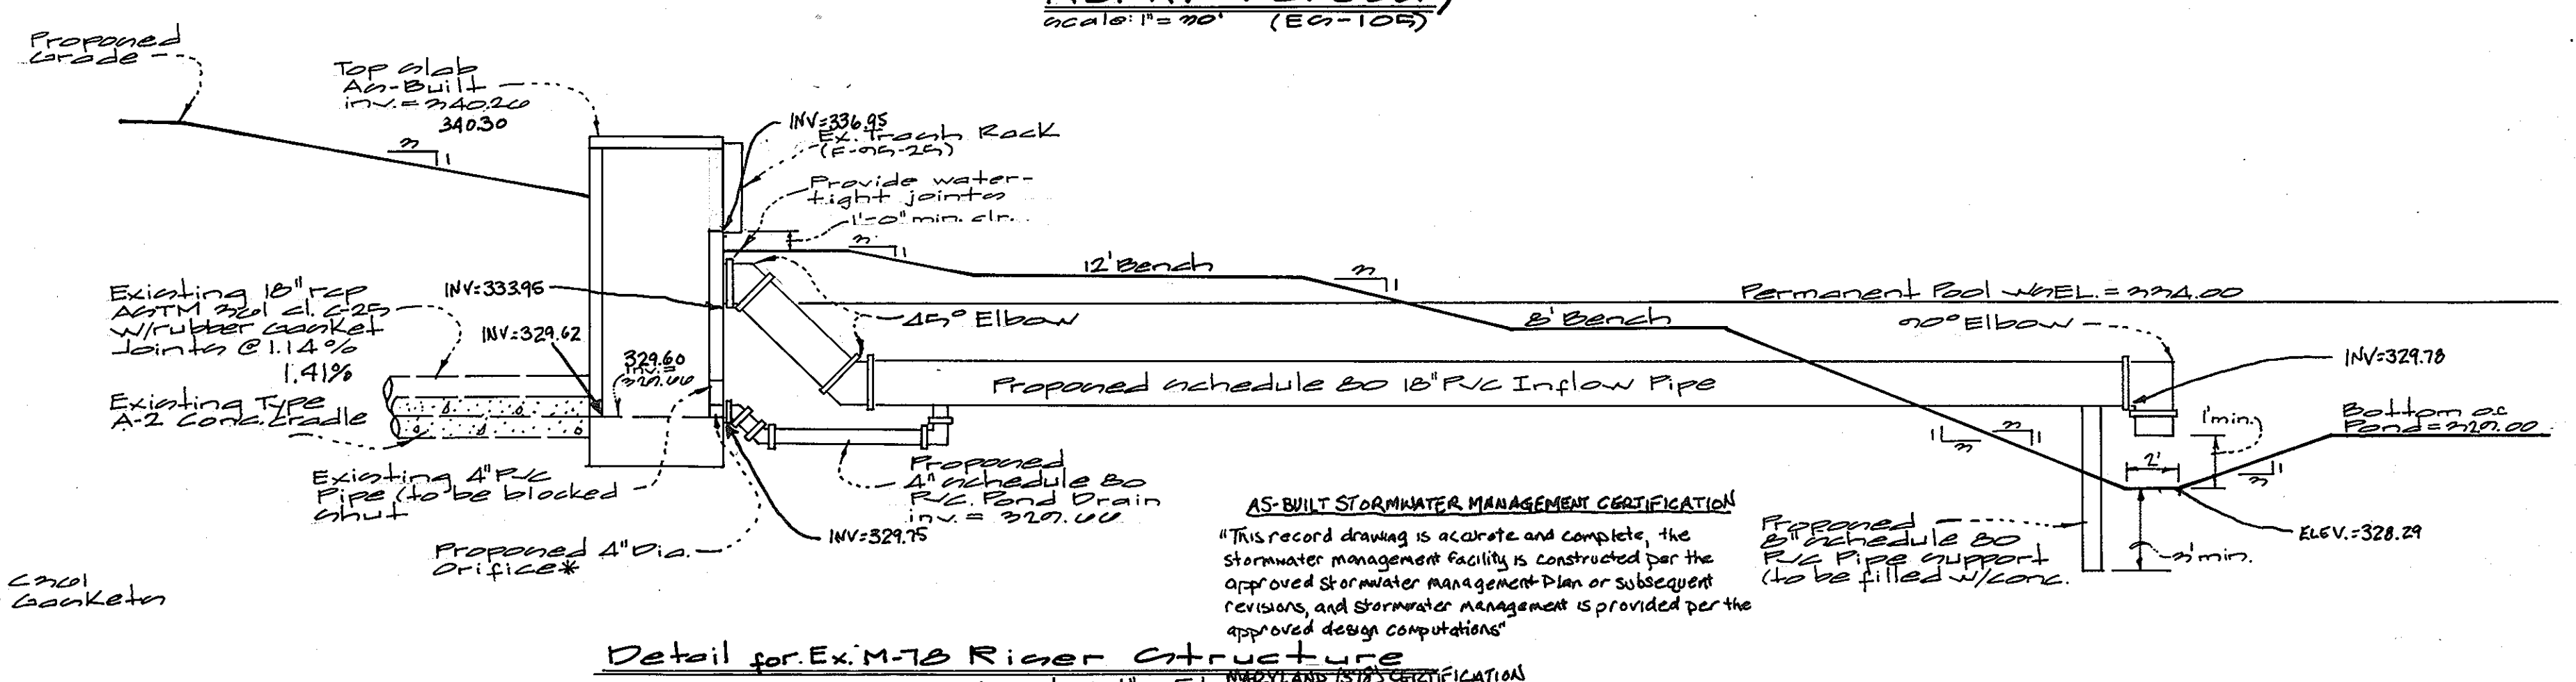 scale: 1" = 30' (ES-105)
Proposed
Grade
Top slab
As-Built
inv. = 340.26
340.30
3
1
INV=336.95
Ex. Trash Rack
(F-95-25)
Provide water-
tight joints
1'-0" min. clr.
3
1
12' Bench
3
1
Permanent Pool WSEL. = 334.00
Existing 18" rcp
ASTM 361 cl. C-25
w/rubber Gasket
Joints @ 1.14%
1.41%
INV=333.95
INV=329.62
329.60
inv. =
329.66
45° Elbow
8' Bench
90° Elbow
INV=329.78
Proposed schedule 80 18" PVC Inflow Pipe
Existing Type
A-2 Conc. Cradle
1' min.
Bottom of
Pond = 329.00
1
3
3
1
2'
3
1
Existing 4" PVC
Pipe (to be blocked
shut
Proposed
4" schedule 80
PVC. Pond Drain
inv. = 329.66
Proposed 4" Dia.
Orifice*
INV=329.75
AS-BUILT STORMWATER MANAGEMENT CERTIFICATION
"This record drawing is accurate and complete, the
stormwater management facility is constructed per the
approved stormwater management Plan or subsequent
revisions, and stormwater management is provided per the
approved design computations"
Proposed
8" schedule 80
PVC Pipe support
(to be filled w/conc.
3' min.
ELEV.=328.29
C361
Gaskets
Detail for Ex. M-78 Riser Structure
MARYLAND (378) CERTIFICATION